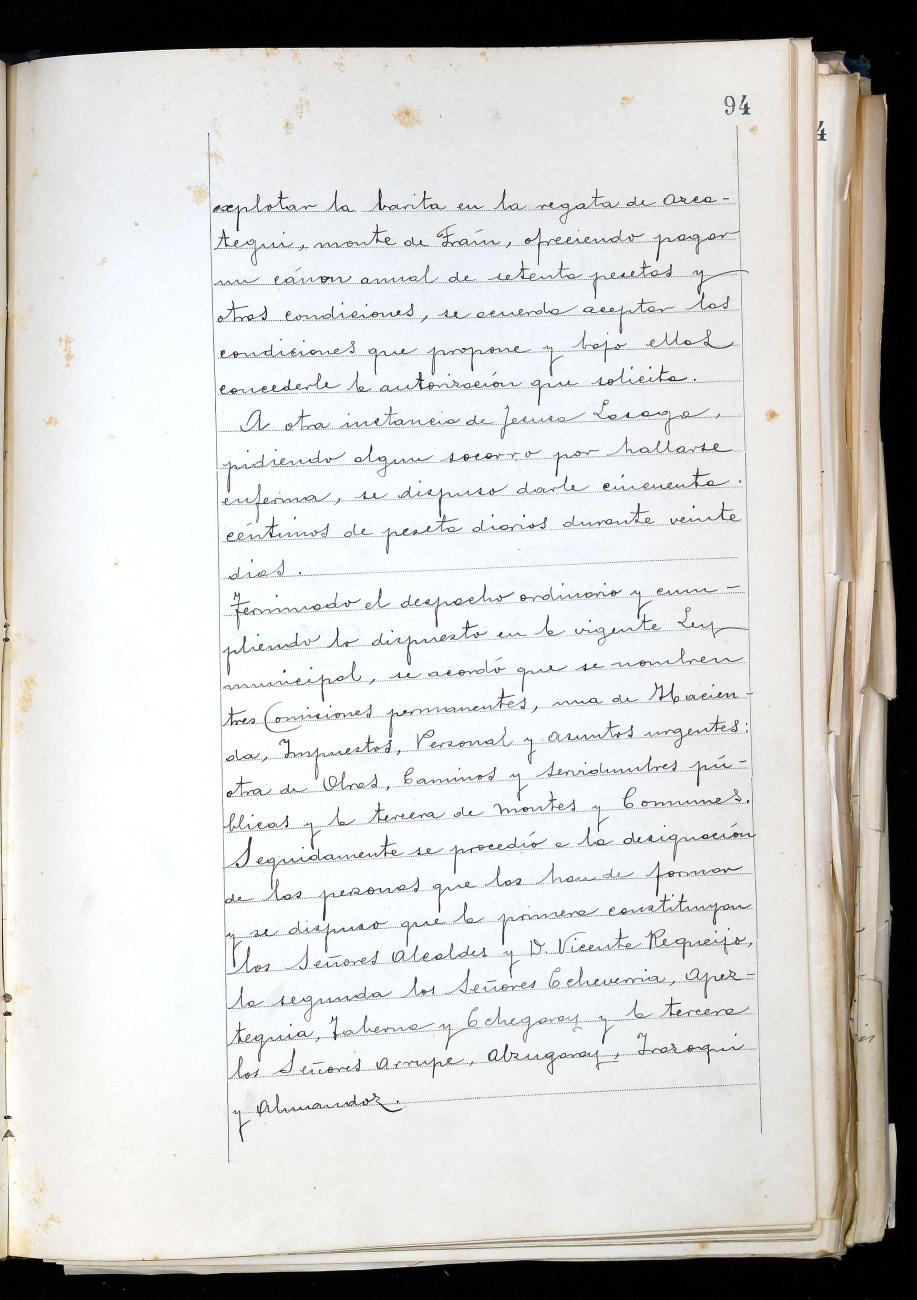 94
4
explotar la barita en la regata de Area-
tegui, monte de Fraín, ofreciendo pagar
un cánon anual de setenta pesetas y
otras condiciones, se acuerda aceptar las
condiciones que propone y bajo ellas
concederle la autorización que solicita.
A otra instancia de Jesusa Lasaga,
pidiendo algun socorro por hallarse
enferma, se dispuso darle cincuenta
céntimos de peseta diarios durante veinte
dias.
Terminado el despacho ordinario y cum-
pliendo lo dispuesto en la vigente Ley
municipal, se acordó que se nombren
tres Comisiones permanentes, una de Hacien-
da, Impuestos, Personal y asuntos urgentes:
otra de Obras, Caminos y servidumbres pú-
blicas y la tercera de montes y Comunes.
Seguidamente se procedió a la designación
de las personas que las han de formar
y se dispuso que la primera constituyan
los Señores Alcaldes y D. Vicente Requeijo,
la segunda los Señores Echeverria, Apez-
teguia, Taberna y Echegaray y la tercera
los Señores Arrupe, Alzugaray, Irazoqui
y Almandoz.